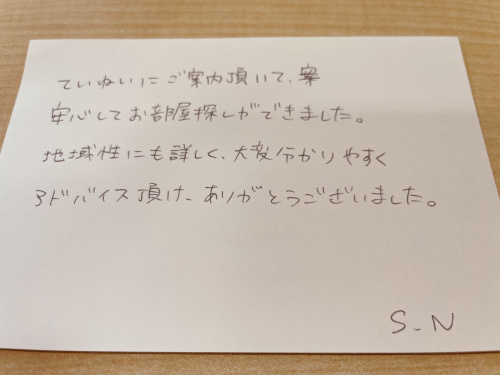 ていねいにご案内頂いて、
安心してお部屋探しができました。
地域性にも詳しく、大変分かりやすく
アドバイス頂け、ありがとうございました。
S.N